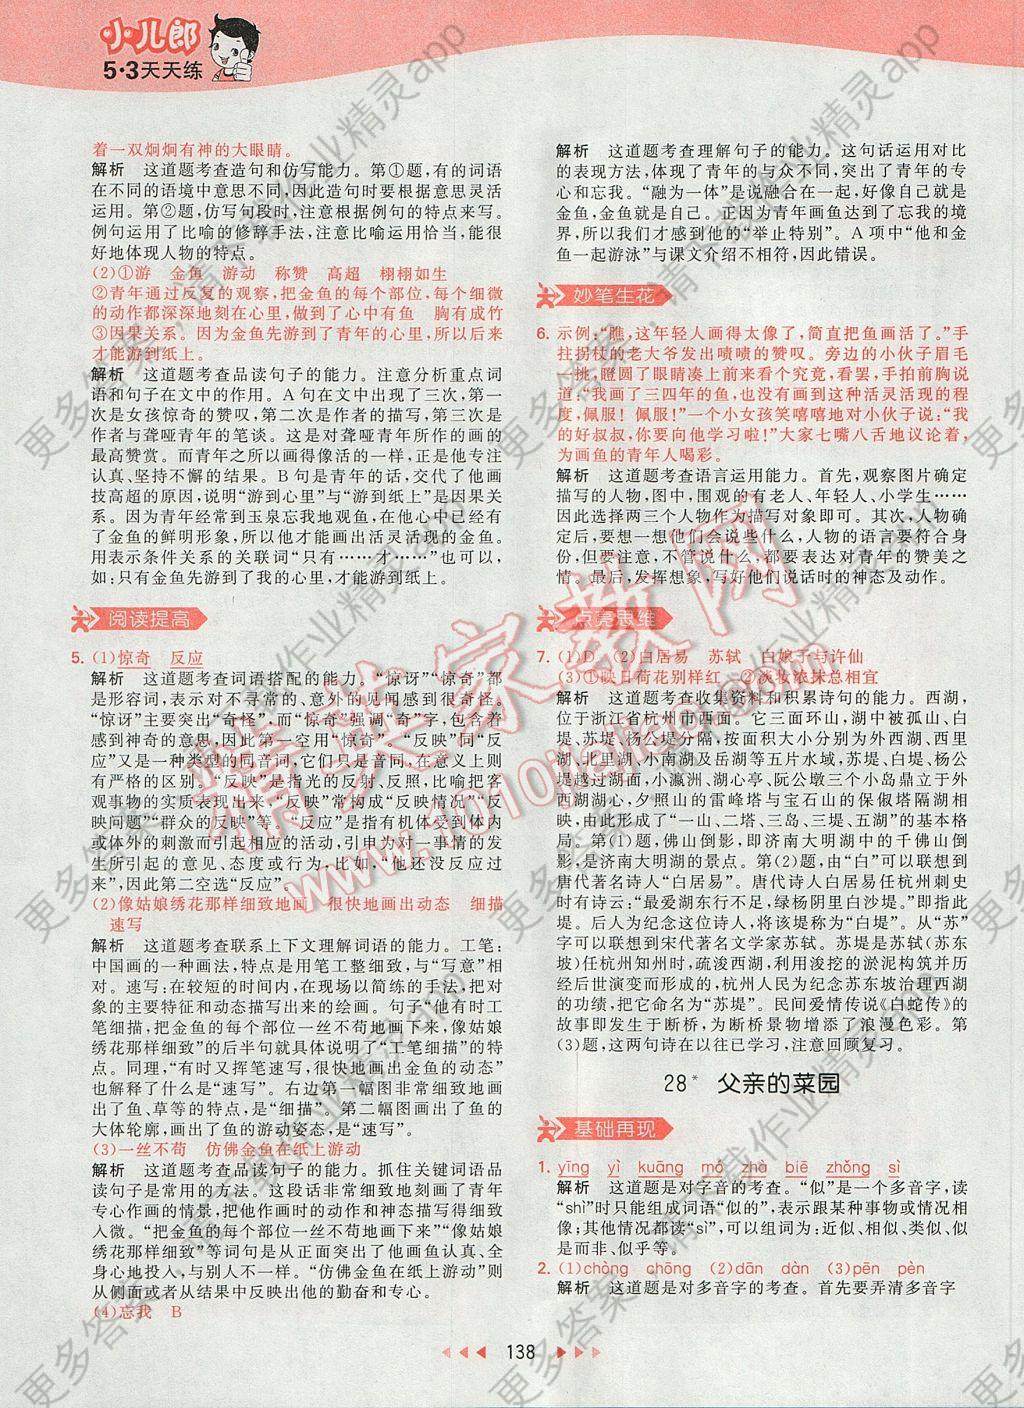 小儿郎
5·3天天练
着一双炯炯有神的大眼睛。
解析 这道题考查造句和仿写能力。第①题,有的词语
在不同的语境中意思不同,因此造句时要根据意思灵活
运用。第②题,仿写句段时,注意根据例句的特点来写。
例句运用了比喻的修辞手法,注意比喻运用恰当,能很
好地体现人物的特点。
(2)①游 金鱼 游动 称赞 高超 栩栩如生
②青年通过反复的观察,把金鱼的每个部位,每个细微
的动作都深深地刻在心里,做到了心中有鱼 胸有成竹
③因果关系。因为金鱼先游到了青年的心里,所以后来
才能游到纸上。
解析 这道题考查品读句子的能力。注意分析重点词
语和句子在文中的作用。A句在文中出现了三次,第一
次是女孩惊奇的赞叹,第二次是作者的描写,第三次是
作者与聋哑青年的笔谈。这是对聋哑青年所作的画的
最高赞赏。而青年之所以画得像活的一样,正是他专注
认真、坚持不懈的结果。B句是青年的话,交代了他画
技高超的原因,说明“游到心里”与“游到纸上”是因果关
系。因为青年经常到玉泉忘我地观鱼,在他心中已经有
了金鱼的鲜明形象,所以他才能画出活灵活现的金鱼。
用表示条件关系的关联词“只有…………才……”也可以,
如:只有金鱼先游到了我的心里,才能游到纸上。
阅读提高
5. (1)惊奇 反应
解析 这道题考查词语搭配的能力。“惊讶”“惊奇”都
是形容词,表示对不寻常的、意外的见闻感到很奇怪。
“惊讶”主要突出“奇怪”,而“惊奇”强调“奇”字,包含着
感到神奇的意思,因此第一空用“惊奇”。“反映”同“反
应”又是一种类型的同音词,它们只是音同,在意义上则
有严格的区别。“反映”是指光的反射、反照,比喻把客
观事物的实质表现出来,“反映”常构成“反映情况”“反
映问题”“群众的反映”等。“反应”是指有机体受到体内
或体外的刺激而引起相应的活动,引申为对一事情的发
生所引起的意见、态度或行为,比如,“他还没反应过
来”,因此第二空选“反应”。
(2)像姑娘绣花那样细致地画 很快地画出动态 细描
速写
解析 这道题考查联系上下文理解词语的能力。工笔:
中国画的一种画法,特点是用笔工整细致,与“写意”相
对。速写:在较短的时间内,在现场以简练的手法,把对
象的主要特征和动态描写出来的绘画。句子“他有时工
笔细描,把金鱼的每个部位一丝不苟地画下来,像姑娘
绣花那样细致”的后半句就具体说明了“工笔细描”的特
点。同理,“有时又挥笔速写,很快地画出金鱼的动态”
也解释了什么是“速写”。右边第一幅图非常细致地画出
了鱼、草等的特点,是“细描”。第二幅图画出了鱼的
大体轮廓,画出了鱼的游动姿态,是“速写”。
(3)一丝不苟 仿佛金鱼在纸上游动
解析 这道题考查品读句子的能力。抓住关键词语品
读句子是常用的方法。这段话非常细致地刻画了青年
专心作画的情景,把他作画时的动作和神态描写得细致
入微。“把金鱼的每个部位一丝不苟地画下来”“像姑娘
绣花那样细致”等词句是从正面描写了画鱼人认真、全
身心地投入,与鱼融为一体。“仿佛金鱼在纸上游动”则
从侧面或者从结果中反映出他的勤奋和专心。
(4)忘我 B
解析 这道题考查理解句子的能力。这句话运用对比
的表现方法,体现了青年的与众不同,突出了青年的专
心和忘我。“融为一体”是说融合在一起,好像自己就是
金鱼,金鱼就是自己。正因为青年画鱼达到了忘我的境
界,所以我们才感到他的“举止特别”。A项中“他和金
鱼一起游泳”与课文介绍不相符,因此错误。
妙笔生花
6. 示例:“瞧,这年轻人画得太像了,简直把鱼画活了。”手
拄拐杖的老大爷发出啧啧的赞叹。旁边的小伙子眉毛
一挑,瞪圆了眼睛凑上前来看个究竟,看罢,手指前胸说
道:“我画了三四年的鱼,也没有画到这样的活灵活现的程
度,佩服!佩服!”一个小女孩笑嘻嘻地对小伙子说:“我
的好叔叔,你要向他学习啦!”大家七嘴八舌地议论着,
为画鱼的青年人喝彩。
解析 这道题考查语言运用能力。首先,观察图片确定
描写的人物,图中,围观的有老人、年轻人、小学生……
因此选择两三个人物作为描写对象即可。其次,人物确
定后,要想一想他们会说些什么,人物的语言要符合身
份,但要注意,不管说什么,都要表达对青年的赞美之
情。最后,发挥想象,写好他们说话时的神态及动作。
点亮思维
7. (1)D (2)白居易 苏轼 白娘子与许仙
(3)①映日荷花别样红 ②淡妆浓抹总相宜
解析 这道题考查收集资料和积累诗句的能力。西湖,
位于浙江省杭州市西面。它三面环山,湖中被孤山、白
堤、苏堤、杨公堤分隔,按面积大小分别为外西湖、西里
湖、北里湖、小南湖及岳湖等五片水域,苏堤、白堤、杨公
堤越过湖面,小瀛洲、湖心亭、阮公墩三个小岛鼎立于外
西湖湖心,夕照山的雷峰塔与宝石山的保俶塔隔湖相
映,由此形成了“一山、二塔、三岛、三堤、五湖”的基本格
局。第(1)题,佛山倒影,即济南大明湖中的千佛山倒
影,是济南大明湖的景点。第(2)题,由“白”可以联想到
唐代著名诗人“白居易”。唐代诗人白居易任杭州刺史
时有诗云:“最爱湖东行不足,绿杨阴里白沙堤。”即指此
堤。后人为纪念这位诗人,将其称为“白堤”。从“苏”
字可以联想到宋代著名文学家苏轼。苏堤是苏轼(苏东
坡)任杭州知州时,疏浚西湖,利用浚挖的淤泥构筑并历
经后世演变而形成的,杭州人民为纪念苏东坡治理西湖
的功绩,把它命名为“苏堤”。民间爱情传说《白蛇传》的
故事即发生于断桥,为断桥景物增添了浪漫色彩。第
(3)题,这两句诗在以往已学习,注意回顾复习。
28* 父亲的菜园
基础再现
1. yīng yì kuāng mó zhà biē zhǒng sì
解析 这道题是对字音的考查。“似”是一个多音字,读
“shì”时只能组成词语“似的”,表示跟某种事物或情况相
像;其他情况都读“sì”,可以组词为:近似、相似、类似、似
是而非、似乎等。
2. (1)chòng chōng (2)dān dàn (3)pēn pèn
解析 这道题是对多音字的考查。首先要弄清多音字
138
精英家教网
www.1010jiajiao.com
更多答案,请下载作业精灵app